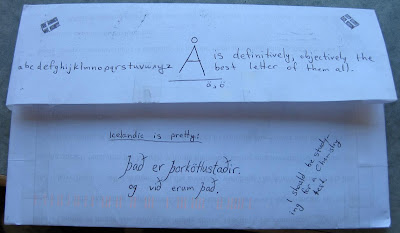 abcdefghijklmnopqrstuvwxyz
Å
is definitively, objectively the
best letter of them all.
Icelandic is pretty:
það er þorkötlustaðir.
og við erum það.
I should be study-
ing for a chemistry
test